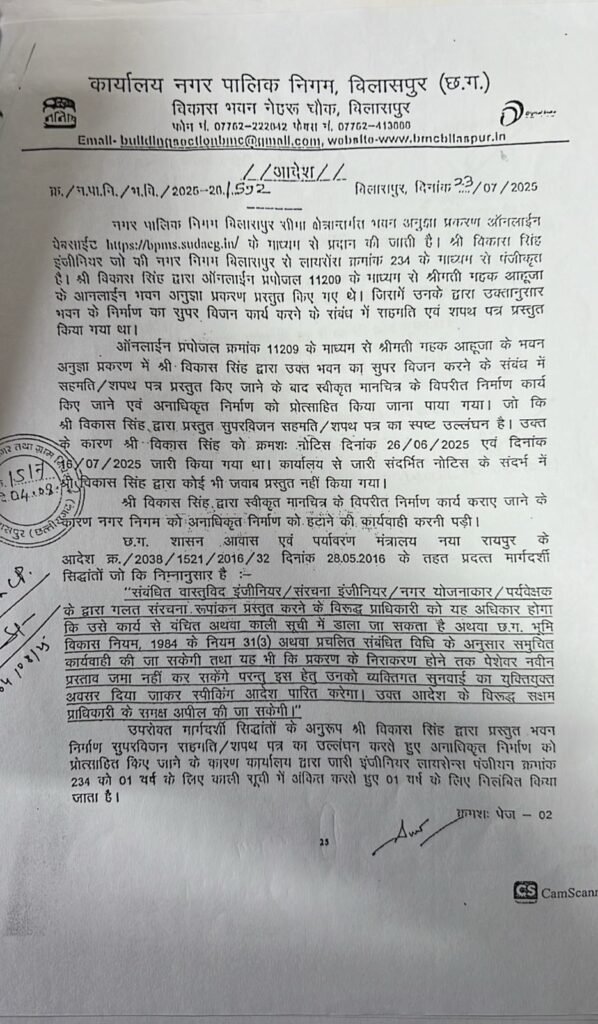 कार्यालय नगर पालिक निगम, विलासपुर (छ.ग.)
विकास भवन नेहरू चौक, विलासपुर
फोन नं. 07762-222642 फैक्स नं. 07762-413000
Email- buildingsectionbmc@gmail.com, website-www.bmcbilaspur.in
//आदेश//
क्र./न.पा.नि./भ.वि./2025-26/592
विलासपुर, दिनांक 23/07/2025
नगर पालिक निगम विलासपुर सीमा क्षेत्रान्तर्गत भवन अनुज्ञा प्रकरण ऑनलाईन
वेबसाईट https://bpms.sudacg.in/ के माध्यम से प्रदान की जाती है। श्री विकास सिंह
इंजीनियर जो की नगर निगम विलासपुर से लायसेंस क्रमांक 234 के माध्यम से पंजीकृत
है। श्री विकास सिंह द्वारा ऑनलाईन प्रपोजल 11209 के माध्यम से श्रीमती महक आहूजा
के आनलाईन भवन अनुज्ञा प्रकरण प्रस्तुत किए गए थे। जिसमें उनके द्वारा उक्तानुसार
भवन के निर्माण का सुपर विजन कार्य करने के संबंध में सहमति एवं शपथ पत्र प्रस्तुत
किया गया था।
ऑनलाईन प्रपोजल क्रमांक 11209 के माध्यम से श्रीमती महक आहूजा के भवन
अनुज्ञा प्रकरण में श्री विकास सिंह द्वारा उक्त भवन का सुपर विजन करने के संबंध में
सहमति/शपथ पत्र प्रस्तुत किए जाने के बाद स्वीकृत मानचित्र के विपरीत निर्माण कार्य
किए जाने एवं अनाधिकृत निर्माण को प्रोत्साहित किया जाना पाया गया। जो कि
श्री विकास सिंह द्वारा प्रस्तुत सुपरविजन सहमति/शपथ पत्र का स्पष्ट उल्लंघन है। उक्त
के कारण श्री विकास सिंह को क्रमशः नोटिस दिनांक 26/06/2025 एवं दिनांक
/07/2025 जारी किया गया था। कार्यालय से जारी संदर्भित नोटिस के संदर्भ में
श्री विकास सिंह द्वारा कोई भी जवाब प्रस्तुत नहीं किया गया।
श्री विकास सिंह द्वारा स्वीकृत मानचित्र के विपरीत निर्माण कार्य कराए जाने के
कारण नगर निगम को अनाधिकृत निर्माण को हटाने की कार्यवाही करनी पड़ी।
छ.ग. शासन आवास एवं पर्यावरण मंत्रालय नया रायपुर के
आदेश क्र./2038/1521/2016/32 दिनांक 28.05.2016 के तहत प्रदत्त मार्गदर्शी
सिद्धांतों जो कि निम्नानुसार है :–
"संबंधित वास्तुविद इंजीनियर/संरचना इंजीनियर/नगर योजनाकार/पर्यवेक्षक
के द्वारा गलत संरचना रूपांकन प्रस्तुत करने के विरूद्ध प्राधिकारी को यह अधिकार होगा
कि उसे कार्य से वंचित अथवा काली सूची में डाला जा सकता है अथवा छ.ग. भूमि
विकास नियम, 1984 के नियम 31(3) अथवा प्रचलित संबंधित विधि के अनुसार समुचित
कार्यवाही की जा सकेगी तथा यह भी कि प्रकरण के निराकरण होने तक पेशेवर नवीन
प्रस्ताव जमा नहीं कर सकेंगे परन्तु इस हेतु उनको व्यक्तिगत सुनवाई का युक्तियुक्त
अवसर दिया जाकर स्पीकिंग आदेश पारित करेगा। उक्त आदेश के विरूद्ध सक्षम
प्राधिकारी के समक्ष अपील की जा सकेगी।"
उपरोक्त मार्गदर्शी सिद्धांतों के अनुरूप श्री विकास सिंह द्वारा प्रस्तुत भवन
निर्माण सुपरविजन सहमति/शपथ पत्र का उल्लंघन करते हुए अनाधिकृत निर्माण को
प्रोत्साहित किए जाने के कारण कार्यालय द्वारा जारी इंजीनियर लायसेन्स पंजीयन क्रमांक
234 को 01 वर्ष के लिए काली सूची में अंकित करते हुए 01 वर्ष के लिए निलंबित किया
जाता है।
क्रमशः पेज – 02
25
CS CamScann